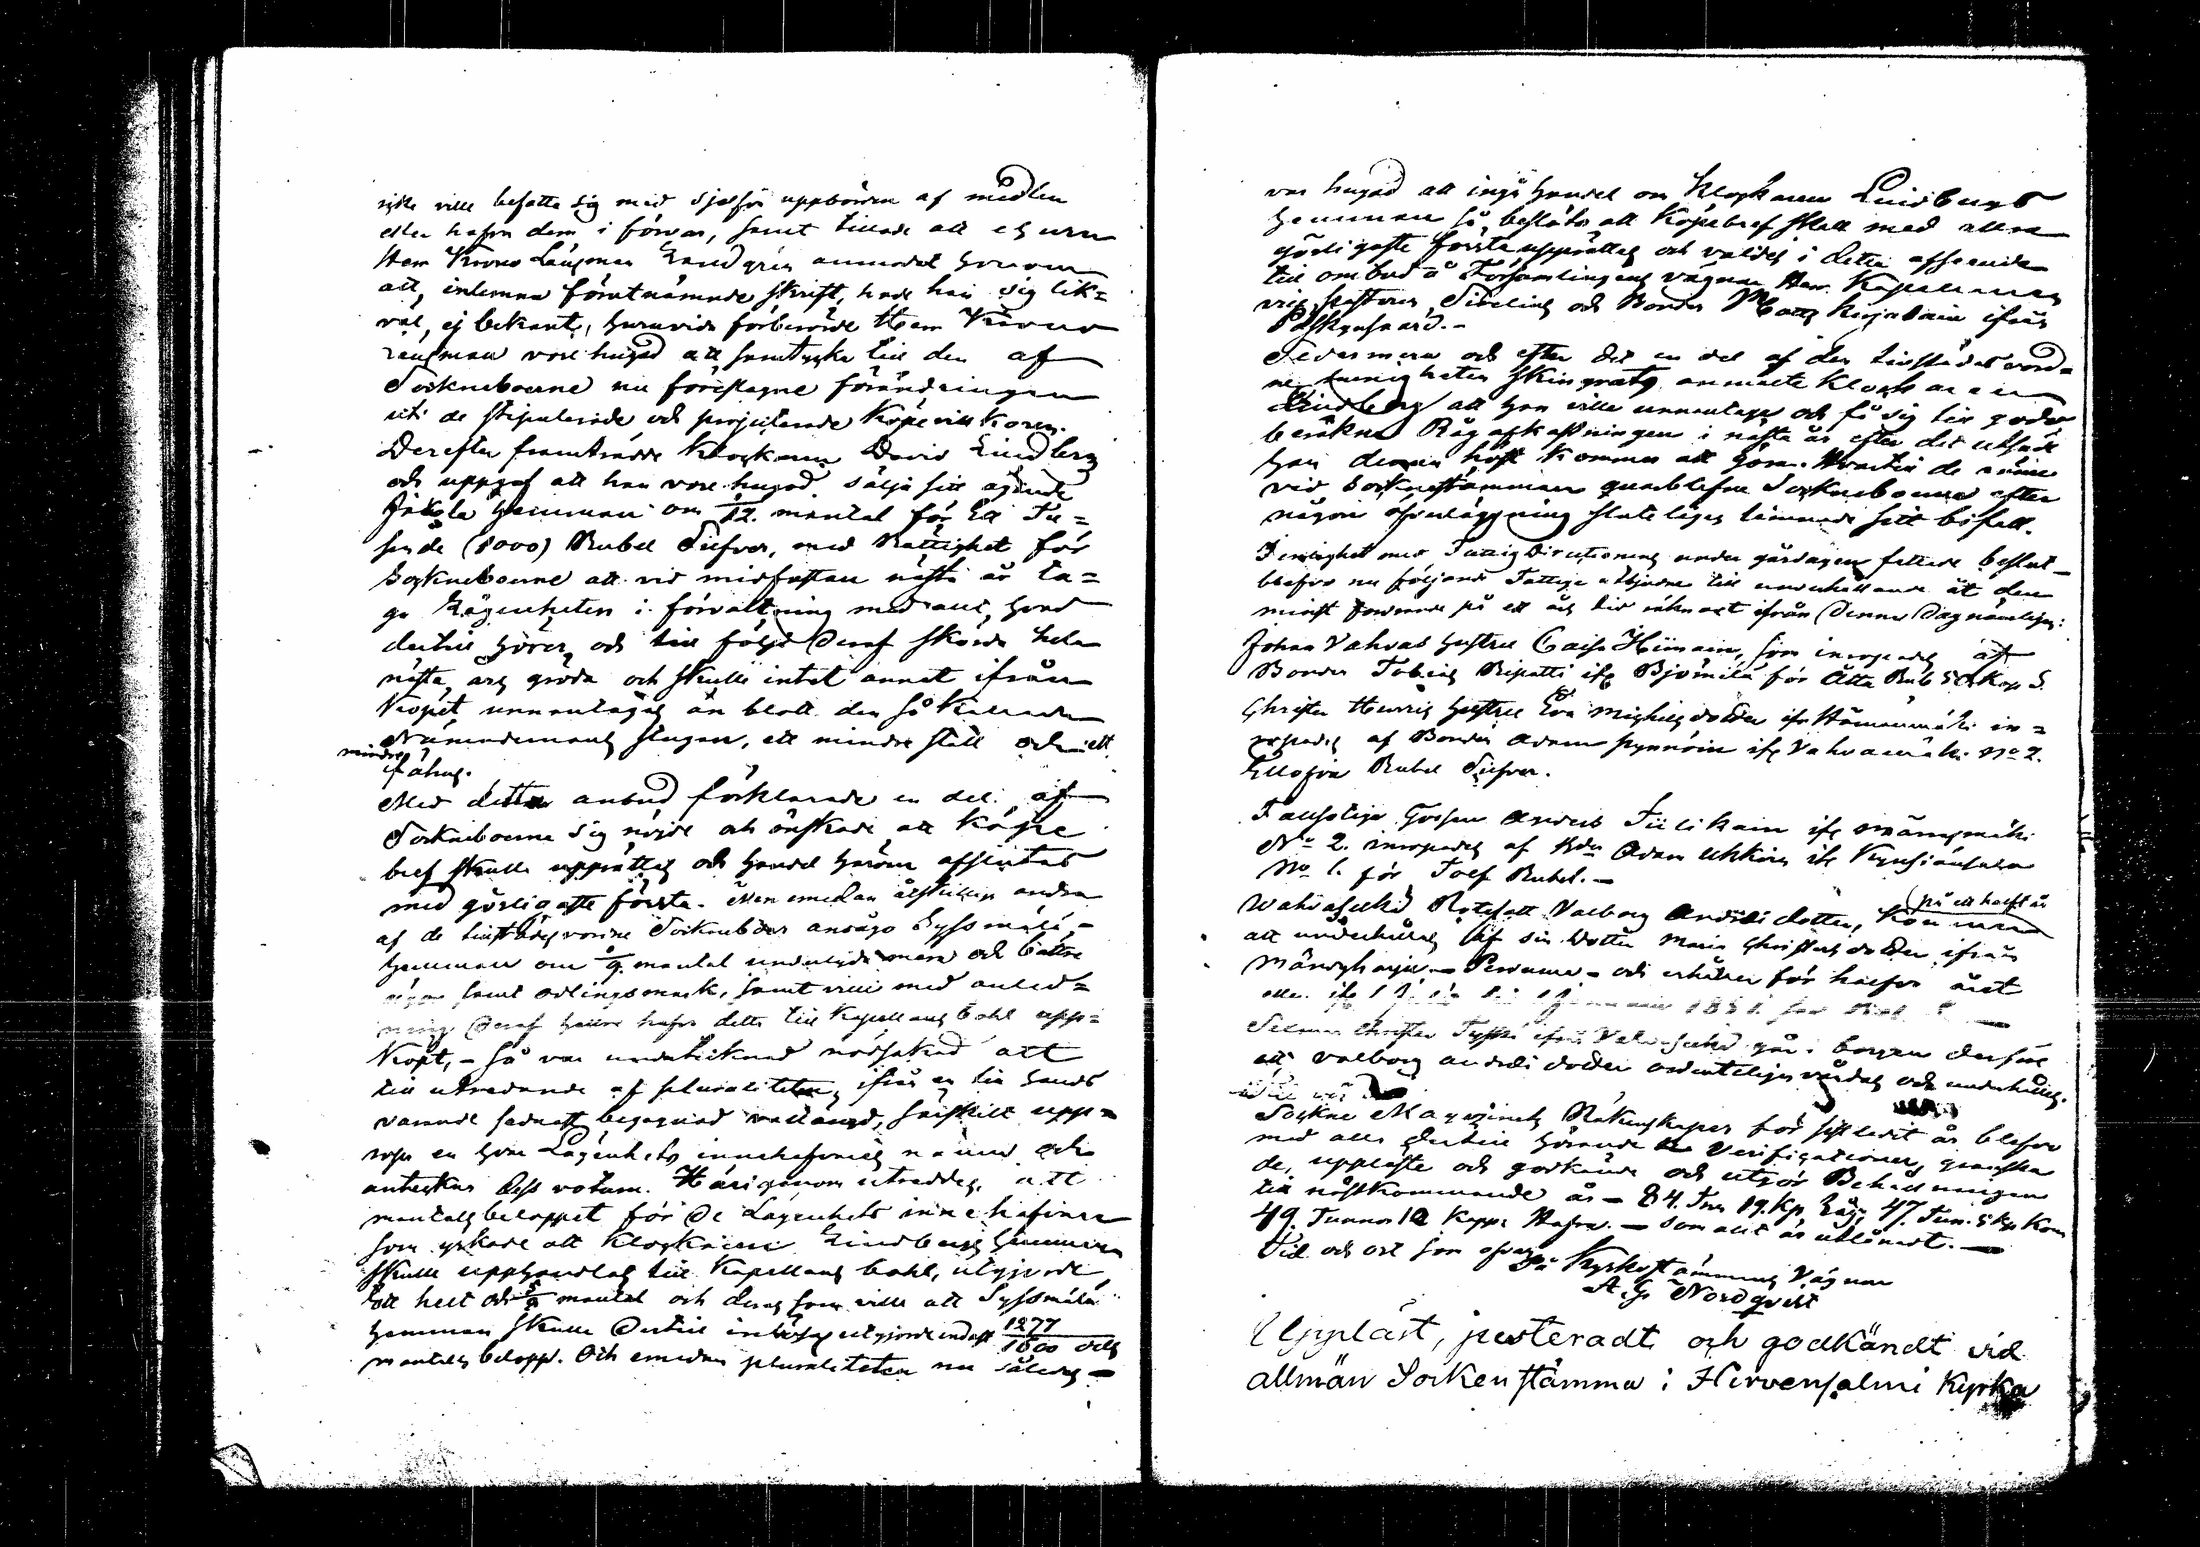 ville befatta sig med sjelfva uppbörden af medlen
eller hafva dem i förvar, samt tillade att ehuru
Herr Krono Länsman Landgrén anmodat honom
att, inlemna förutnämnde skrift, hade han sig lik=
väl, ej bekant, huruvida förberörde Herr Krono
Länsman vore hugad att samtycka till den af
Sockneboerne nu föreslagne förändringen
uti de stipulerade och projecterade Köpevillkoren.
Derefter framträdde Klockaren David Lindberg
och uppgaf att han vore hugad sälja sitt ägande
Jakola hemman om 5/12. mantal för Ett Tu=
sende (1000) Rubel Silfver, med Rättighet för
Sockneboerne att vid midfastan nästa år ta=
ga Lägenheten i förvaltning med allt, hvad
dertill hörer, och till följd deraf skörda hela
nästa års gröda och skulle intet annat ifrån
Köpet unnantagas än blott den så kallade
Nämndemans stugan, ett mindre stall och ett
mindre
fähus.
Med detta anbud förklarade en del af
Socknboerne sig nöjde och önskade att Köpe
bref skulle upprättas och handel härom afslutas
med görligaste första. Men emedan åtskillige andra
af de tillstädesvarne Socknboer ansågo Syssmälä,=
hemman om mantal undertyda mera och bättre
samt odlingsmark, samt ville med anled=
ning deraf hellre hafva detta till Kapellans bohl upp=
köpt, - så var undertecknad nödsakad att
till utredande af pluraliteten, ifrån en till hands
varande sednast begagnad vallängd, särskilt upp=
ropa en hvar Lägenhets innehafvares namn och
anteckna dess votum. Härigenom utreddes, att
mantalsbeloppet för de Lägenhets innehafvare
som yrkade att Klockaren Lindbergs hemman
skulle upphandlas till Kapellans bohl, utgjorde
ett helt och mantal och deras som ville att Syssmälä
hemman skulle dertill inlösas utgjorde endast 1277/1600 dels
mantals belopp. Och emedan pluraliteten nu således
var hugad att ingå handel om Klockaren Lindbergs
hemman så beslöts att Köpebref skall med allra
görligaste första upprättas och valdes i detta afseende
till ombud å Församlingens vägnar Herr Kapellanen
Sirelius och Bonden Matts ifrån
Pääskynsaari.-
Widermera och efter det en del af den tillstädes vord=
ne menigheten skingrats anmälte Klockaren
Lindberg att han ville unnantaga och få sig till godo
beräkna Rågafkastningen i nästa år efter det utsäde
han denna höst kommer att göra. Hvartill de ännu
vid Socknestämman quarblefne Socknboerne efter
någon öfverläggning slutligen lämnade sitt bifall.
I enlighet med Fattig Directionens under gårdagen fattade beslut
blefvo nu följande Fattige utbjudne till underhållande åt den
minst fordrande på ett års tid räknat ifrån denna dag nämligen:
Johan Vahvas hustru Caisa Hiimain, som inropades af
Bonden Tobias Ripatti ifr Björnilä för Åtta Rub 50 Kop S.
Christer Henrics hustru Eva Michelsdotter ifr Hämeenmäki in=
ropades af Bonden Adam Pynnöin ifr Vahvamäki No 2.
Ellofva Rubel Silfver.
Fallsjuka Gossen Anders Tiilikain ifr Mäntymäki
No 2. inropades af Bdn Adam Ukkoin ifr Kynsiänsaari
No 1. för Tolf Rubel.-
på ett halft år
Wahvaselkä Rotefatt Valborg Andersdotter, Kommer
att underhållas af sin dotter Maria Christersdotter ifrån
Mändyharju - och erhåller för halfva året
Christer Tyski ifrån Vahvaselkä går i borgen derföre
att Valborg Andersdotter ordenteligen vårdas och underhålles.
Sockne Magazinets Räkenskaper för sistledit år blefvo
med alla dertill hörande Verificationer, granska
de, upplästa och godkände och utgör Behållningen
till nästkommande år - 84. Tnr 19. Kp Råg, 47. Tun. 5 kp Korn
49. Tunnor 12 Kappr Hafra. - som allt är utlånat.-
Tid och ort som ofvan
På Kyrkostämmans Vägnar
A. G. Nordqvist
Uppläst, justeradt och godkändt vid
allmän Sockenstämma i Hirvensalmi Kyrka